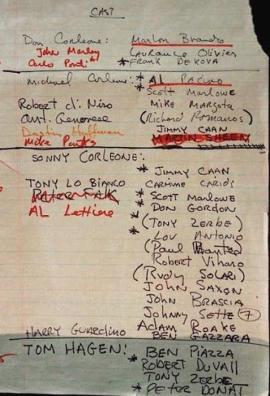 CAST
Don Corleone: Marlon Brando
John Marley Laurance Olivier
Carlo Ponti * Frank DeKova
Michael Corleone: * Al Pacino
* Scott Marlowe
Robert di Niro Mike Margota
Ant. Genovese (Richard Romancos)
Dustin Hoffman Jimmy Caan
Mike Parks Martin Sheen
Sonny Corleone:
* Jimmy Caan
Tony Lo Bianco Carmine Carids
Peter Falk * Scott Marlowe
Al Lettiere * Don Gordon
* (Tony Zerbe)
* Lou Antonio
(Paul Banteo
Robert Viharo
(Rudy Solari)
John Saxon
John Brascia
Johnny Sette (7)
Adam Roake
Harry Guardino Ben Gazzara
Tom Hagen: * Ben Piazza
Robert Duvall
Tony Zerbe
* Peter Donat